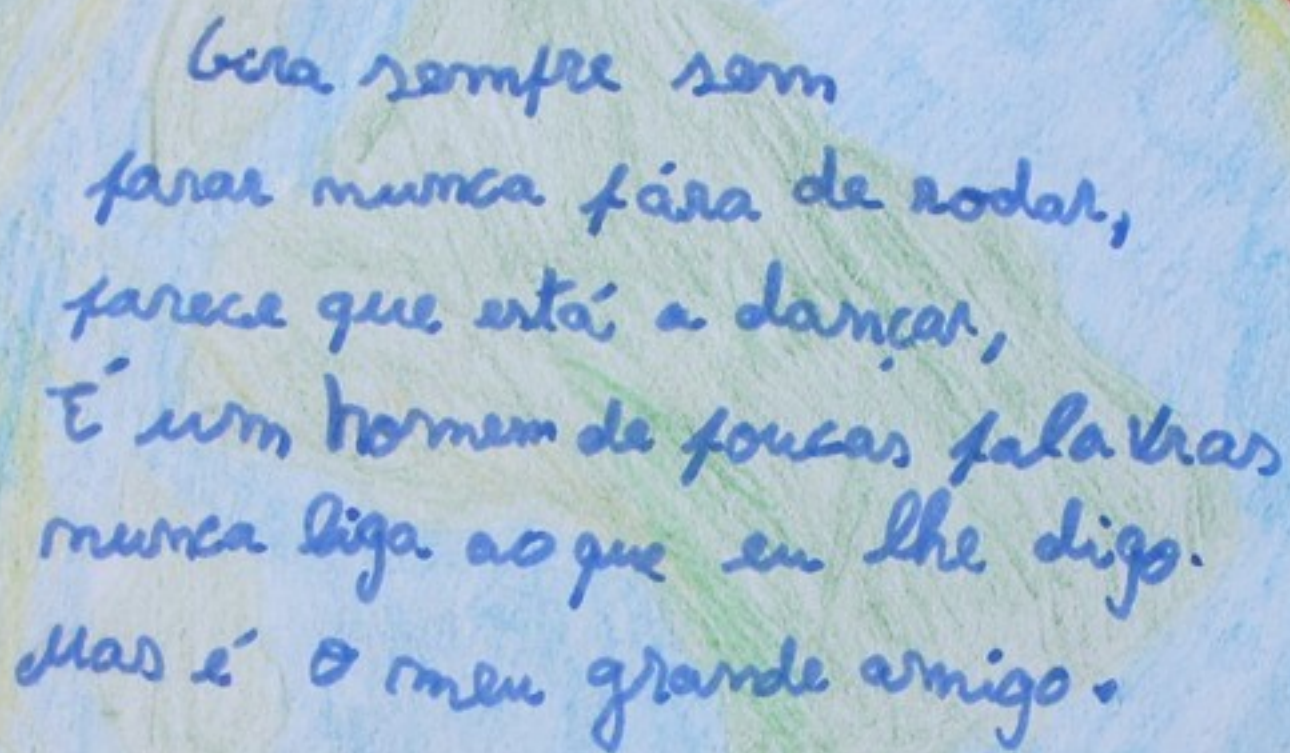 Gira sempre sem
parar nunca pára de rodar,
parece que está a dançar,
É um homem de poucas palavras
nunca liga ao que eu lhe digo.
Mas é o meu grande amigo.